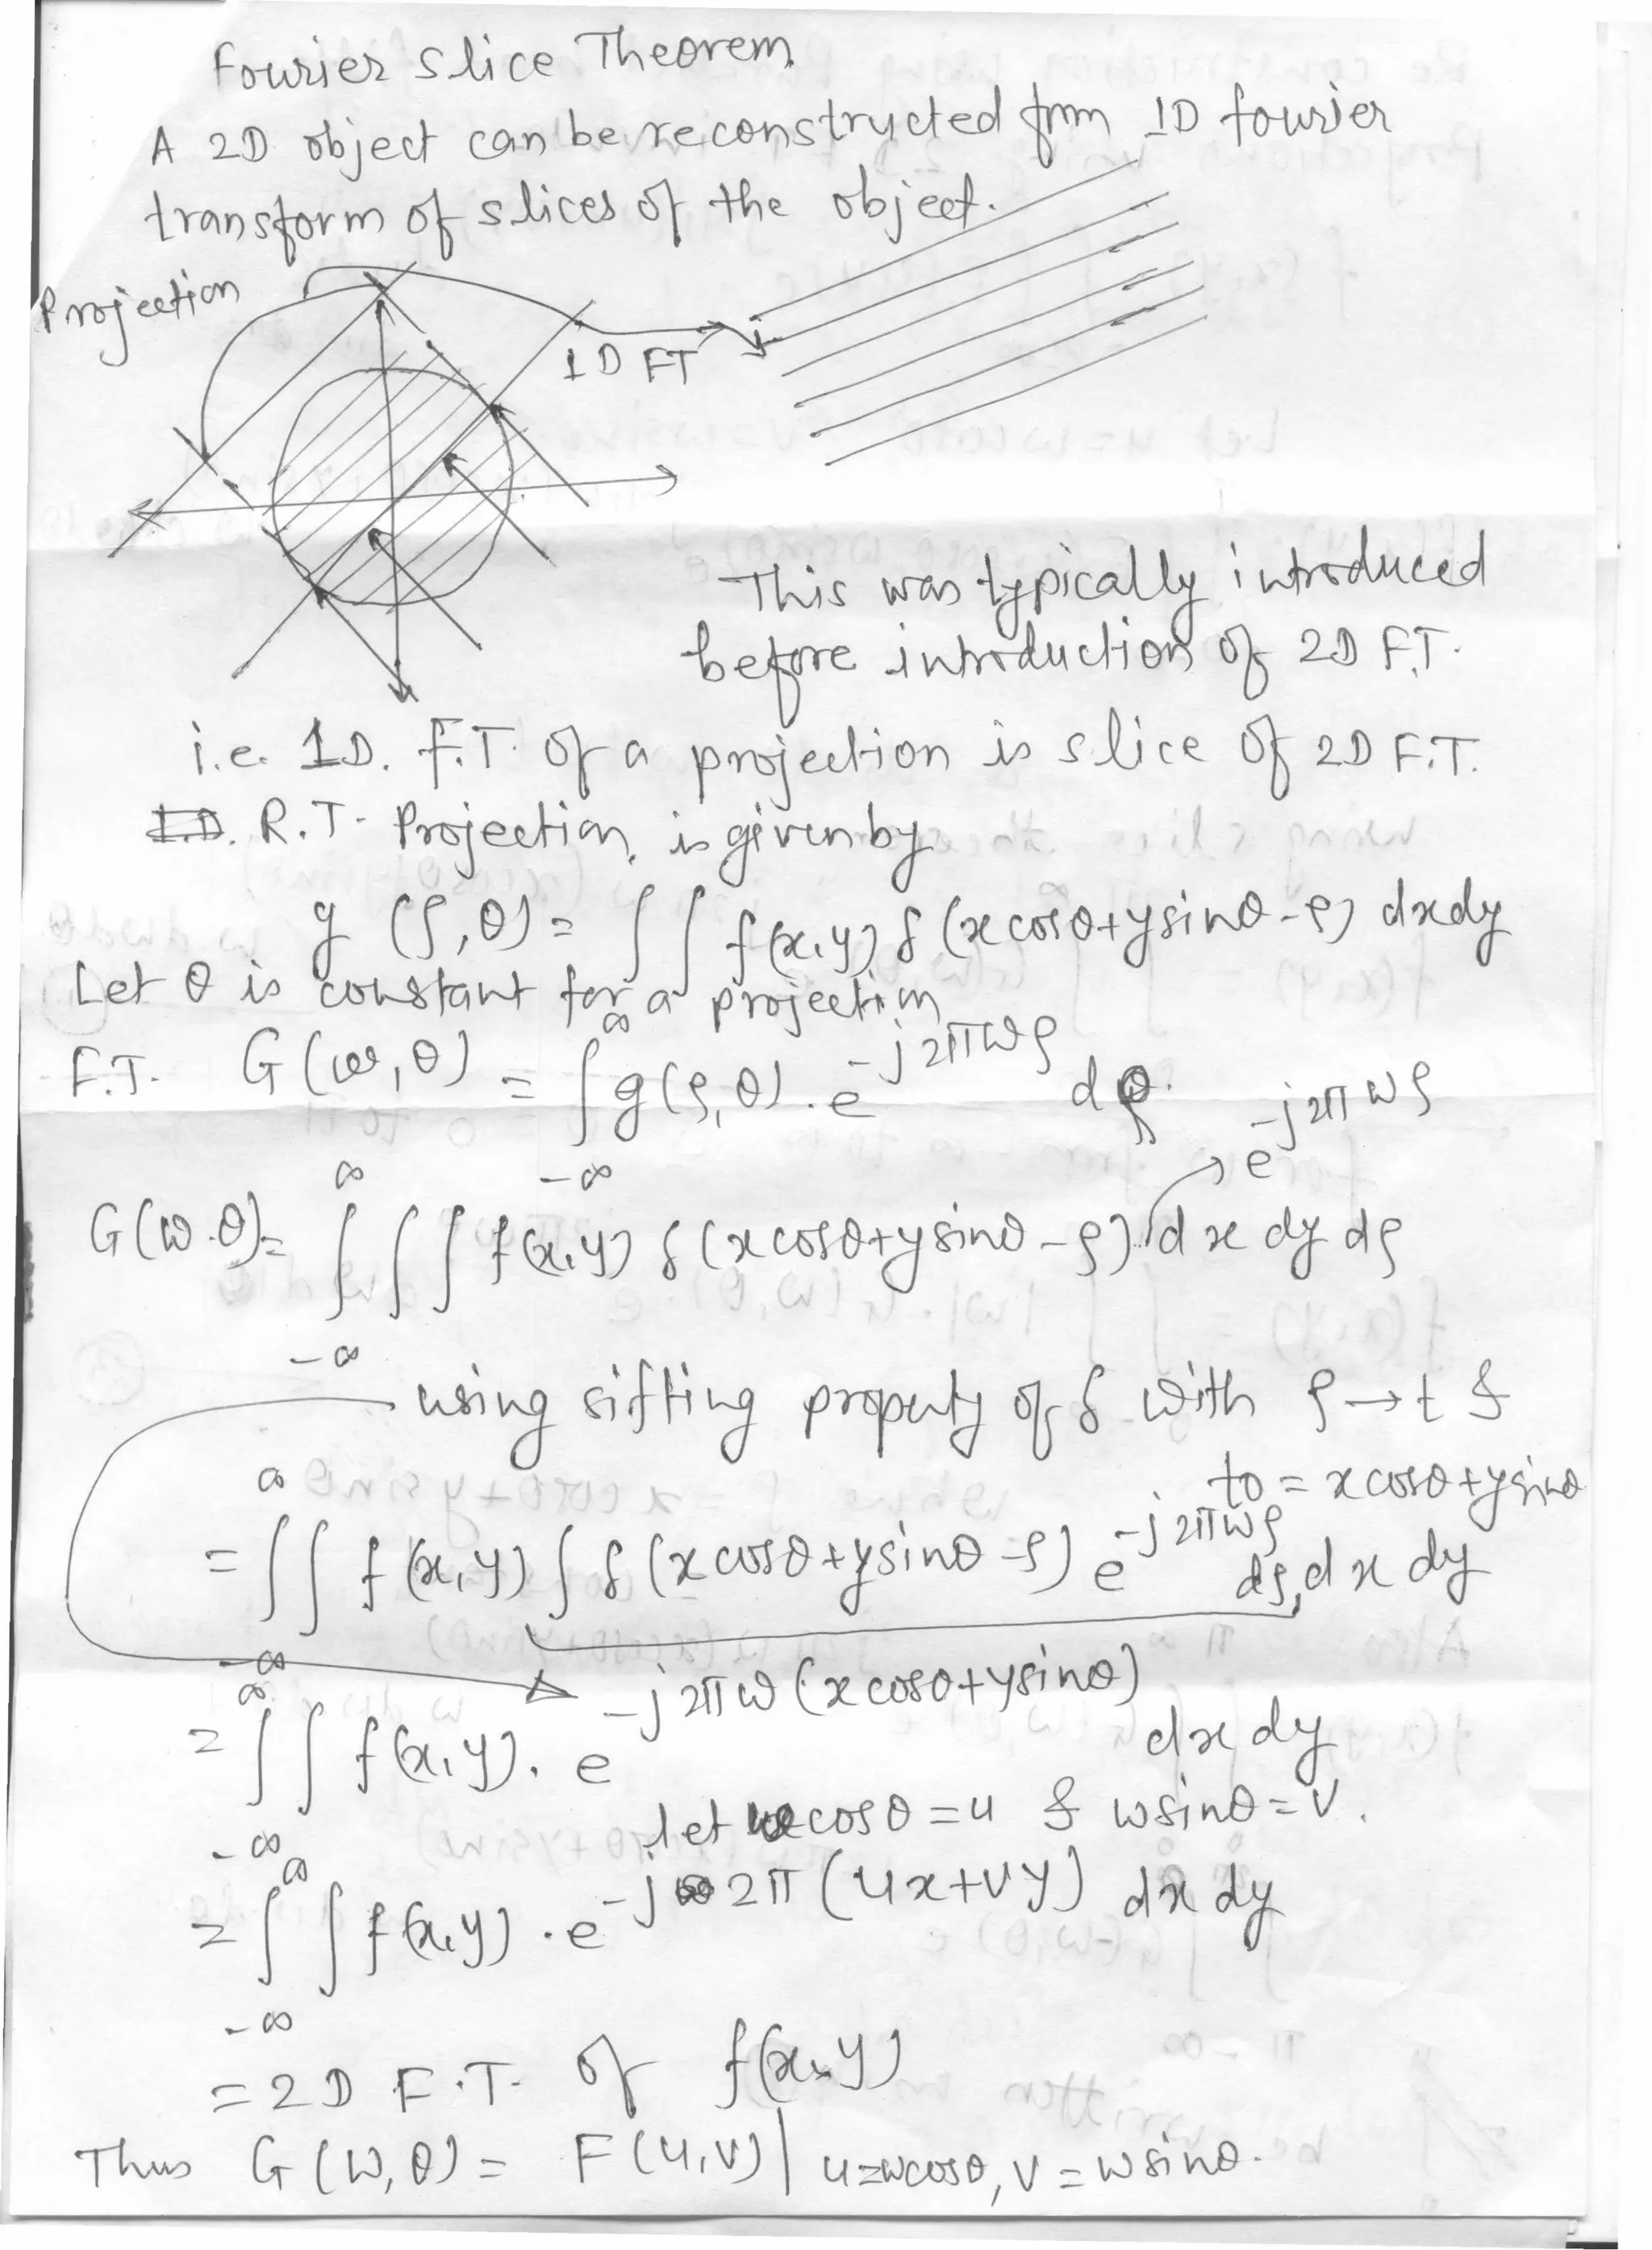 Fourier Slice Theorem
A 2D object can be reconstructed from 1D fourier
transform of slices of the object.
Projection
1D FT
This was typically introduced
before introduction of 2D F.T.
i.e. 1D. F.T. of a projection is slice of 2D F.T.
R.T. Projection is given by
g (ρ,θ) = ∫∫ f(x,y) δ (x cosθ+ysinθ-ρ) dxdy
Let θ is constant for a projection
F.T. G(ω,θ) = ∫_{-∞}^{∞} g(ρ,θ). e^{-j2πωρ} dρ.
e^{-j2πωρ}
G(ω.θ)= ∫_{-∞}^{∞}∫∫ f(x,y) δ (x cosθ+ysinθ-ρ) dx dy dρ
using sifting property of δ with ρ→t &
to = x cosθ+ysinθ
= ∫_{-∞}^{∞}∫ f(x,y) ∫ δ (x cosθ+ysinθ-ρ) e^{-j2πωρ} dρ dx dy
= ∫_{-∞}^{∞}∫ f(x,y). e^{-j2πω(x cosθ+ysinθ)} dx dy
let ωcosθ=u & ωsinθ=v.
= ∫_{-∞}^{∞}∫ f(x,y) .e^{-j2π(ux+vy)} dx dy
=2D F.T. of f(x,y)
Thus G(ω,θ)= F(u,v)| u=ωcosθ, v=ωsinθ.